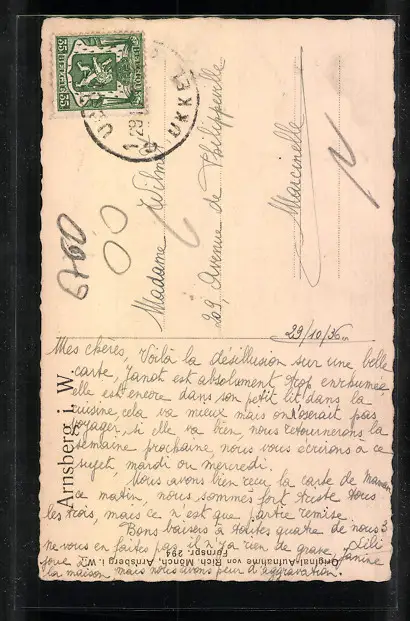 UKKEL
29
35
Madame Wilmet
29, Avenue de Philippeville
Marcinelle
6760
29/10/36
Mes chères, Voilà la désillusion sur une belle
carte, Janot est absolument trop enrhumée
elle est encore dans son petit lit dans la
cuisine, cela va mieux mais on n'oserait pas
voyager, si elle va bien, nous retournerons la
semaine prochaine nous vous écrirons à ce
sujet mardi ou mercredi.
Nous avons bien reçu la carte de maman
ce matin, nous sommes fort triste tous
les trois, mais ce n'est que partie remise.
Bons baisers à toutes quatre de nous 3
ne vous en faites pas, il n'y a rien de grave, Lili
joue Janine
la maison, mais nous avons peur d'aggravation.
Arnsberg i. W.
Original-Aufnahme von Rich. Mönch, Arnsberg i. W.
Fernspr. 294